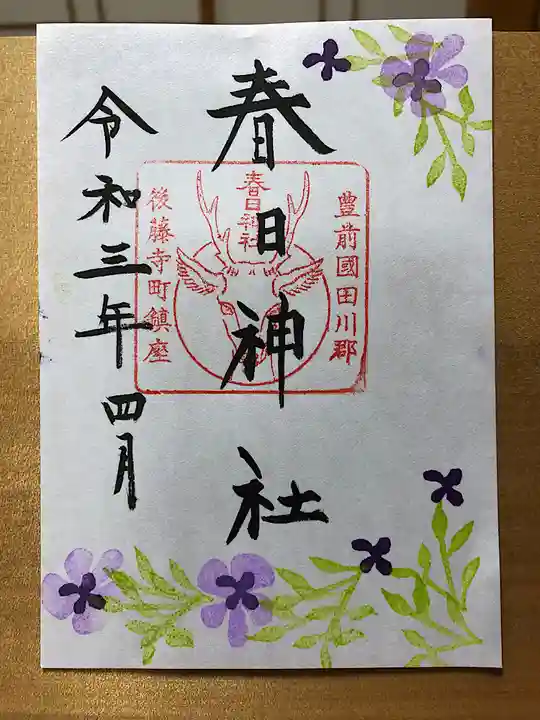 春日神社
豊前國田川郡
春日神社
後藤寺町鎮座
令和三年四月